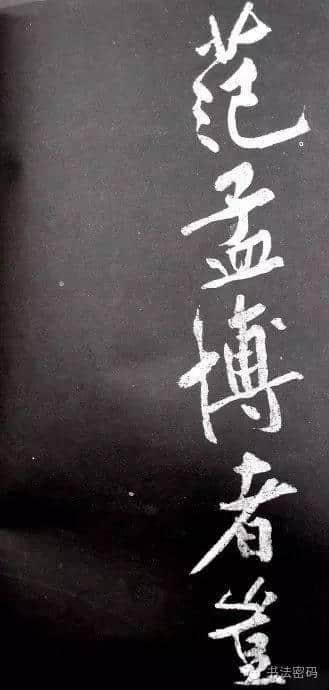 范孟博者豈
书法密码